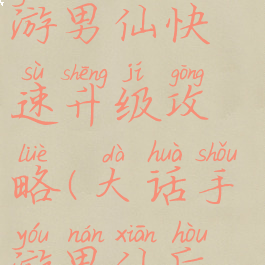 游男仙快
sù shēng jí gōng
速升级攻
lüè dà huà shǒu
略(大话手
yóu nán xiān hòu
游男仙后